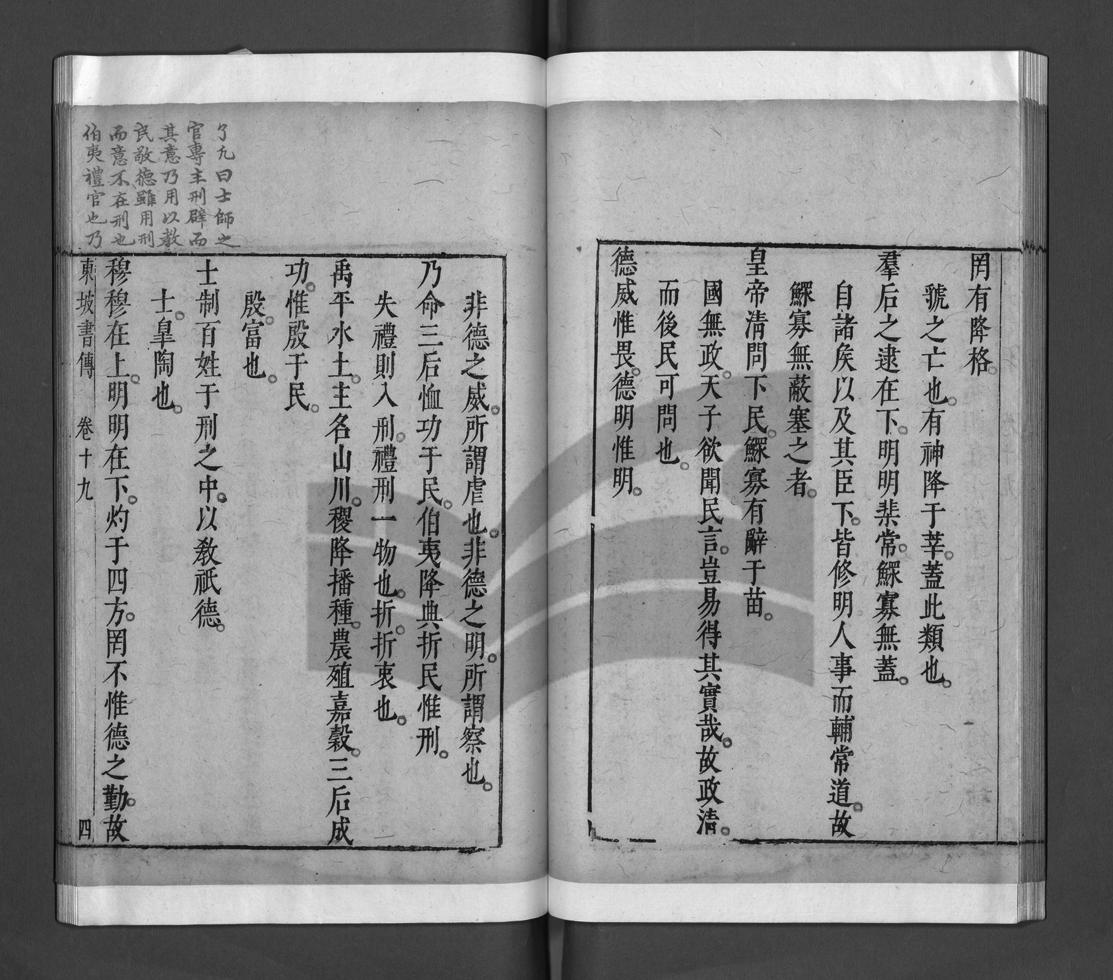 罔有降格。
虢之亡也。有神降于莘。蓋此類也。
羣后之逮在下。明明棐常。鰥寡無蓋。
自諸矦以及其臣下。皆修明人事而輔常道。故
鰥寡無蔽塞之者。
皇帝淸問下民。鰥寡有辭于苗。
國無政。天子欲聞民言。豈易得其實哉。故政淸。
而後民可問也。
德威惟畏。德明惟明。
非德之威。所謂虐也。非德之明。所謂察也。
乃命三后恤功于民。伯夷降典折民惟刑。
失禮則入刑。禮刑一物也。折。折衷也。
禹平水土。主名山川。稷降播種。農殖嘉穀。三后成
功。惟殷于民。
殷。富也。
士制百姓于刑之中。以敎祗德。
士。臯陶也。
穆穆在上。明明在下。灼于四方。罔不惟德之勤。故
東坡書傳 卷十九 四
了凡曰士師之
官專主刑辟而
其意乃用以教
民敬德雖用刑
而意不在刑也
伯夷禮官也乃